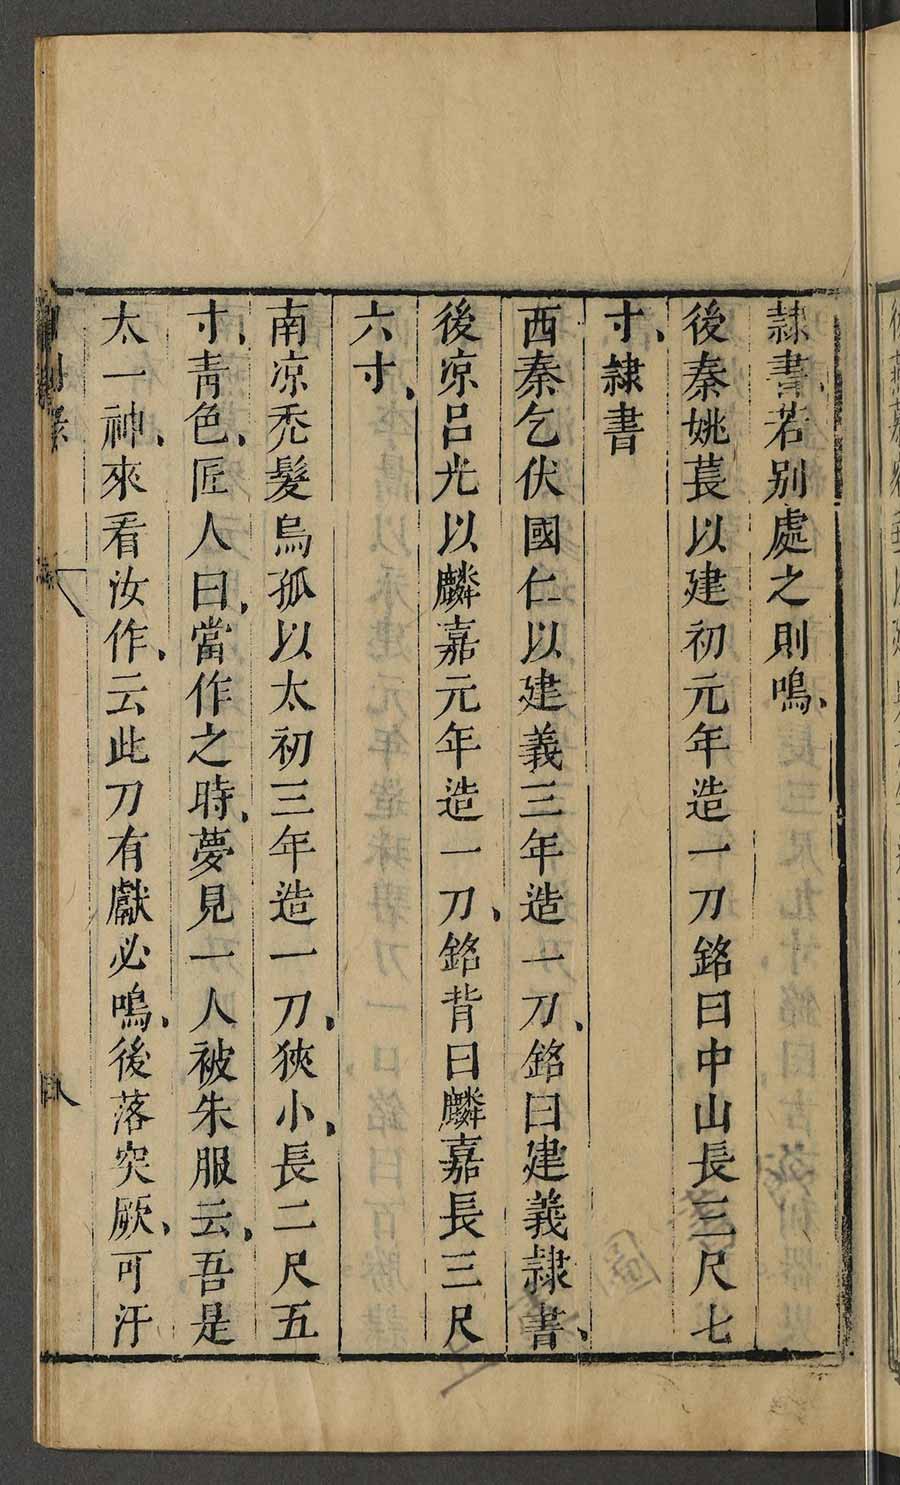 隷書、若別處之則鳴、
後秦姚萇以建初元年造一刀銘曰中山長三尺七
寸、隷書
西秦乞伏國仁以建義三年造一刀、銘曰建義隷書、
後凉呂光以麟嘉元年造一刀、銘背曰麟嘉長三尺
六寸、
南凉禿髮烏孤以太初三年造一刀、狹小、長二尺五
寸、靑色、匠人曰、當作之時、夢見一人被朱服云、吾是
太一神、來看汝作、云此刀有獻必鳴、後落突厥、可汗